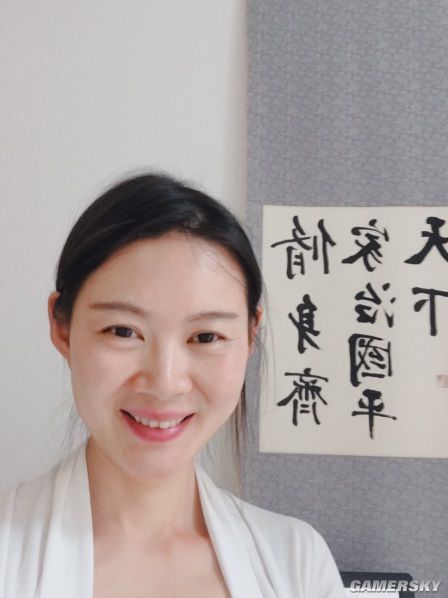 脩身齊
家治國平
天下
GAMERSKY